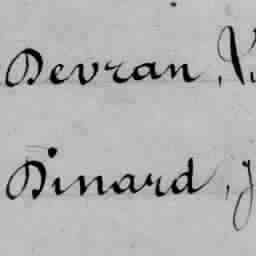 Devran, V
Dinard, J